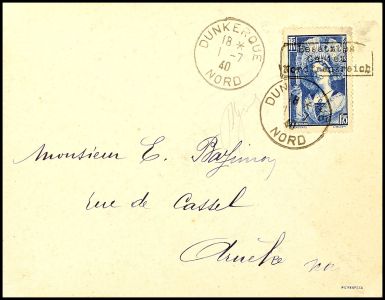 DUNKERQUE
18 *
1 - 7
40
NORD
Besetztes
Gebiet
Nordfrankreich
DUNKERQUE
40
NORD
Monsieur E.
rue de Cassel